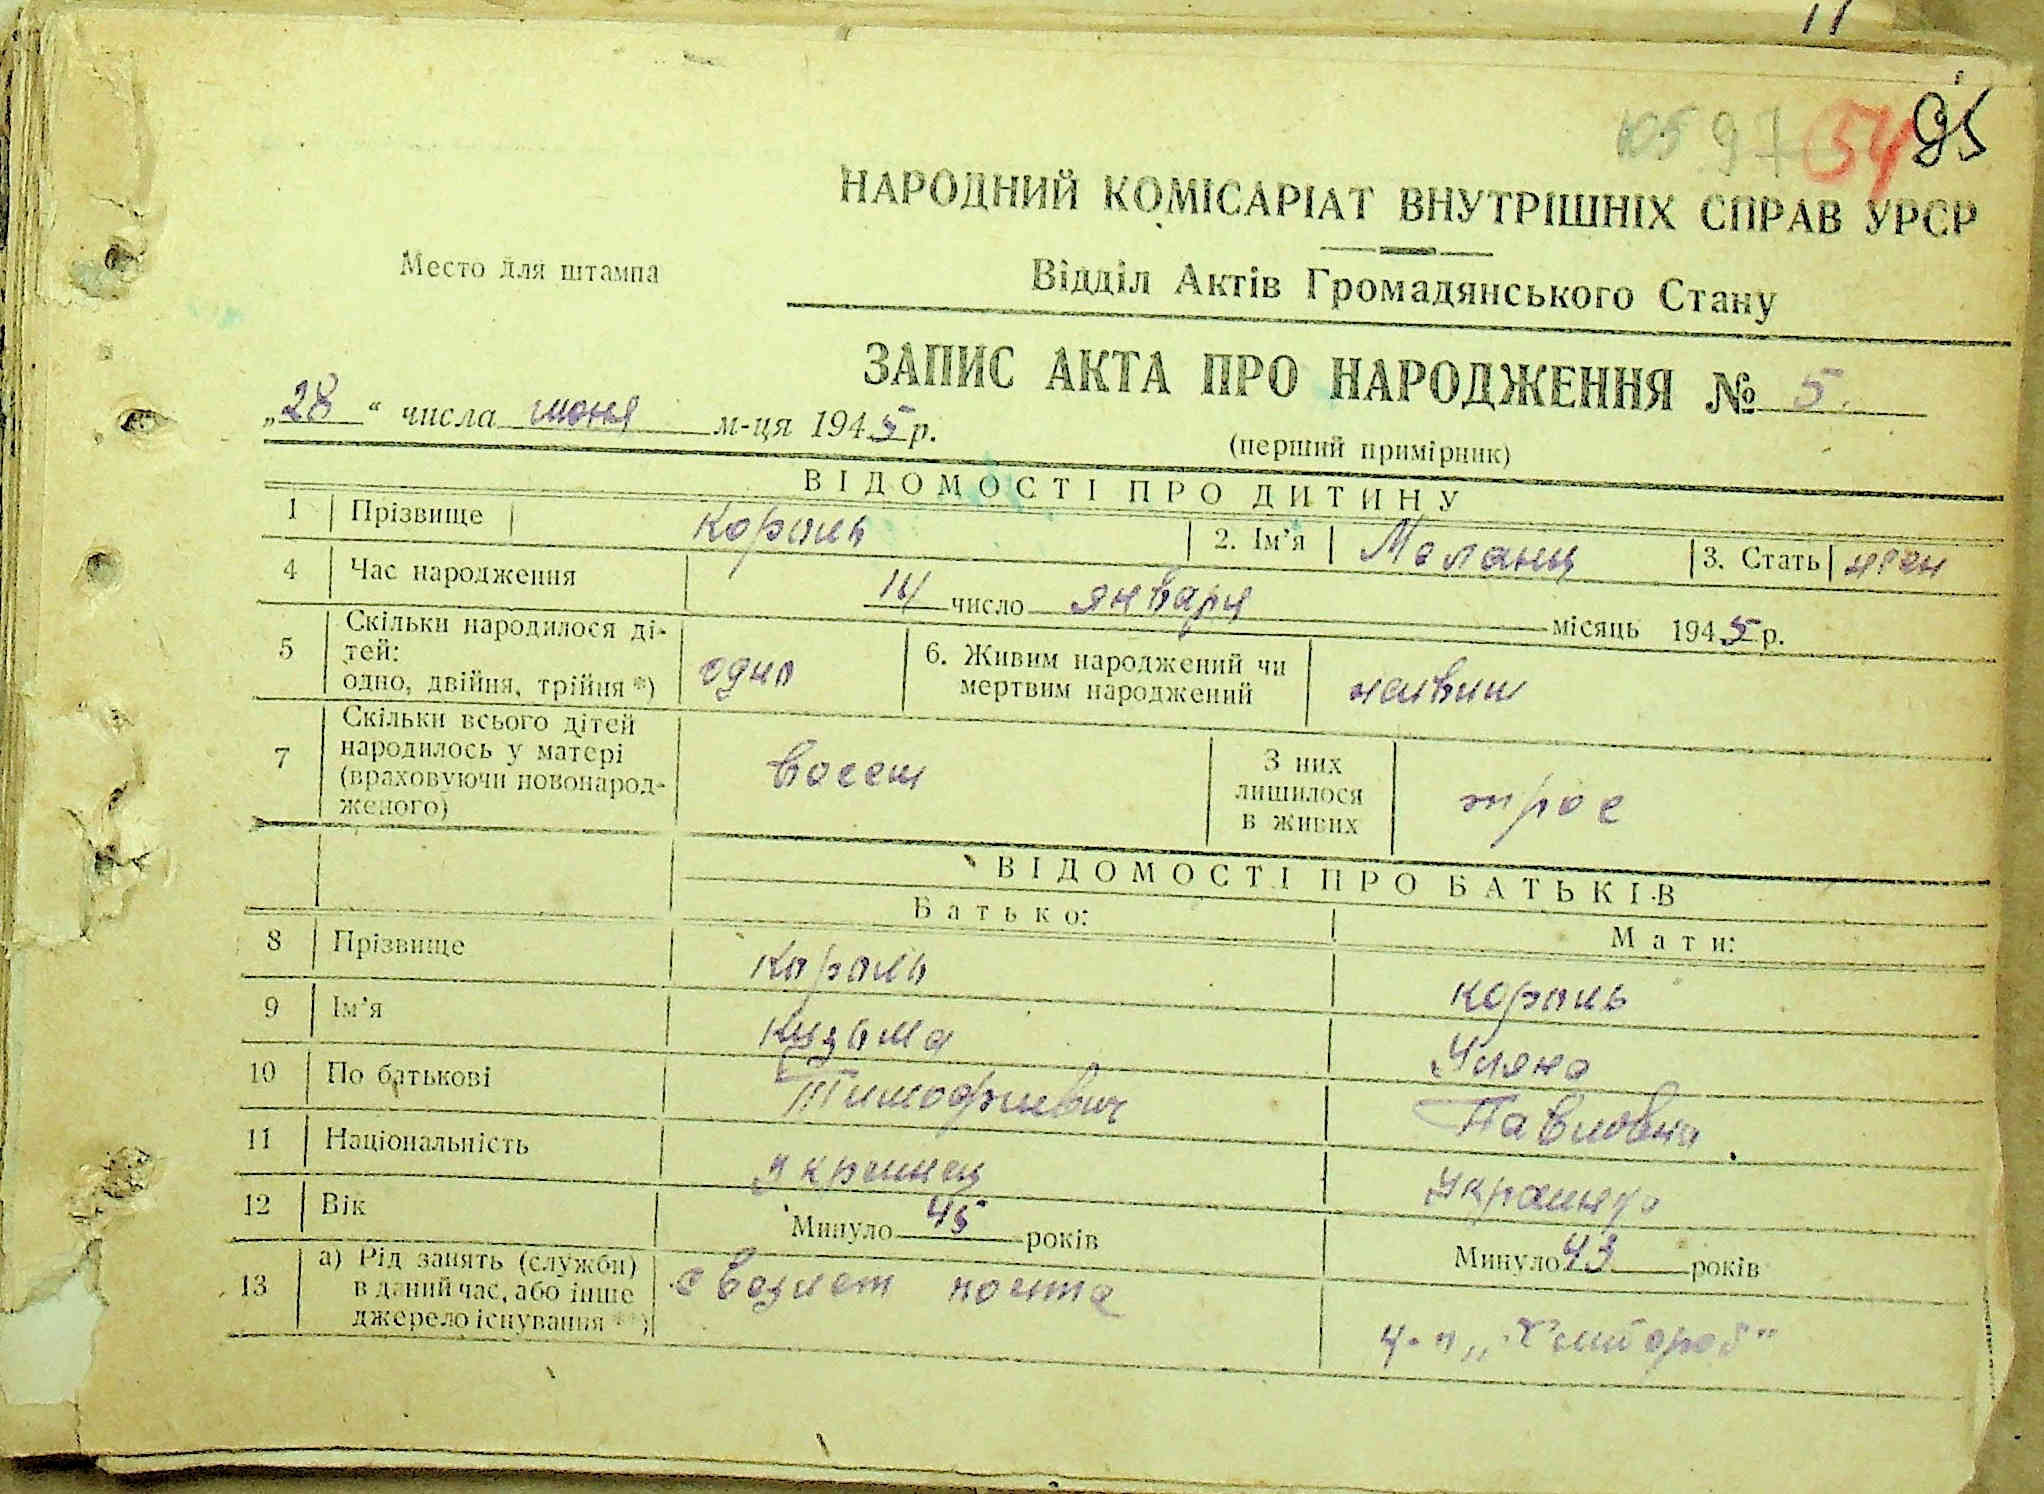 11
105 97 54 95
НАРОДНИЙ КОМІСАРІАТ ВНУТРІШНІХ СПРАВ УРСР
Место для штампа
Відділ Актів Громадянського Стану
ЗАПИС АКТА ПРО НАРОДЖЕННЯ № 5.
„28“ числа июня м-ця 1945 р.
(перший примірник)
ВІДОМОСТІ ПРО ДИТИНУ
1 Прізвище Король 2. Ім’я Мелания 3. Стать жен
4 Час народження 14 число января місяць 1945 р.
5 Скільки народилося ді-
тей:
одно, двійня, трійня *) одно
6. Живим народжений чи
мертвим народжений живим
7 Скільки всього дітей
народилось у матері
(враховуючи новонарод-
женого) восем
З них
лишилося
в живих трое
ВІДОМОСТІ ПРО БАТЬКІВ
Батько: Мати:
8 Прізвище Король Король
9 Ім’я Кузьма Уляна
10 По батькові Тимофиевич Павловна
11 Національність Украинец Украинка
12 Вік Минуло 45 років Минуло 43 років
13 а) Рід занять (служби)
в даний час, або інше
джерело існування **)